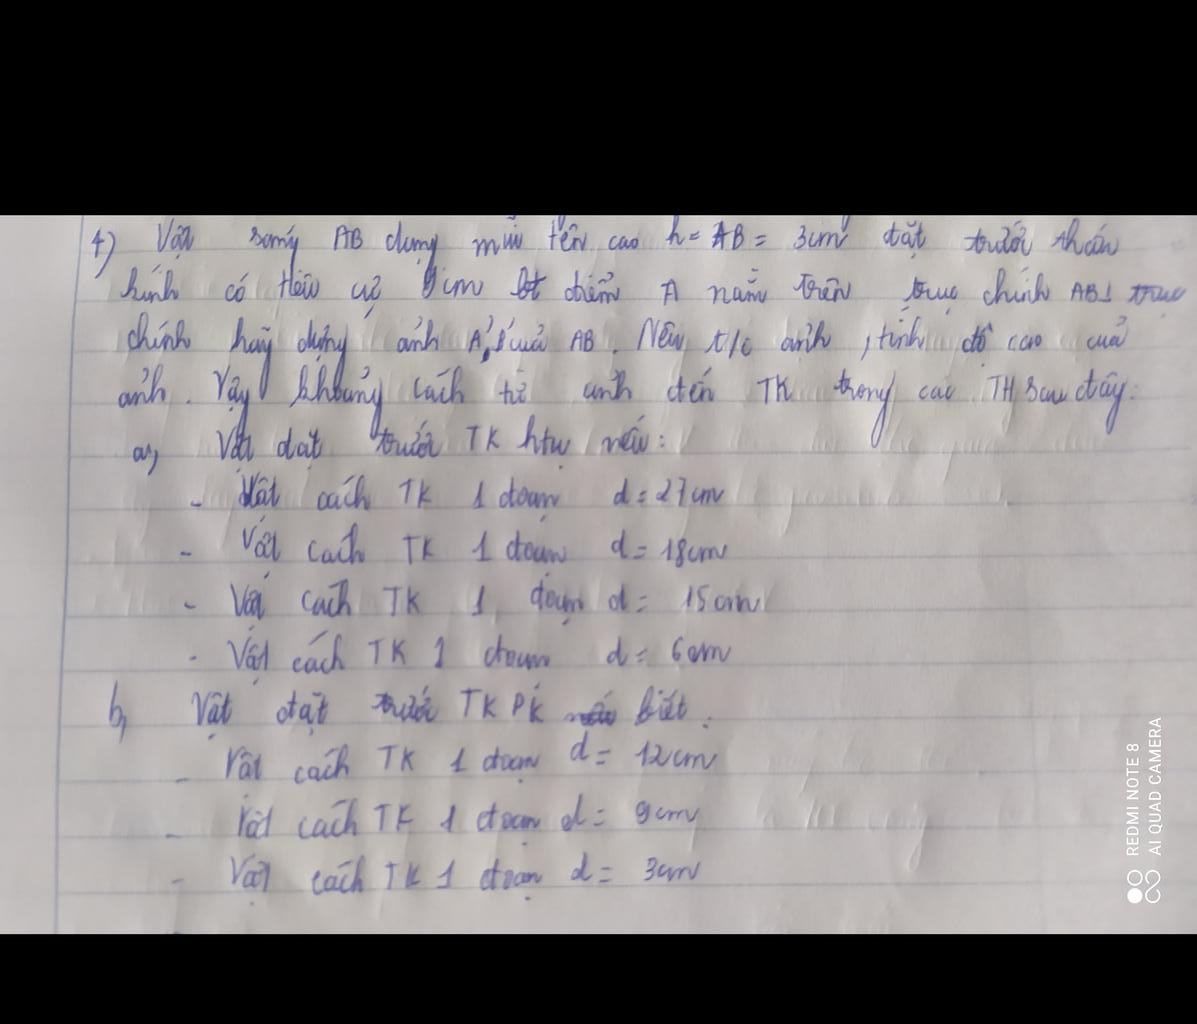 4) Vật sáng AB dạng mũi tên cao h = AB = 3cm đặt trước thấu
kính có tiêu cự 9cm điểm A nằm trên trục chính AB⊥ trục
chính hãy dựng ảnh A'B' của AB. Nêu t/c ảnh, tính độ cao của
ảnh. Vậy khoảng cách từ ảnh đến TK trong các TH sau đây:
a, Vật đặt trước TK htụ nếu:
- Vật cách TK 1 đoạn d = 27cm
- Vật cách TK 1 đoạn d = 18cm
- Vật cách TK 1 đoạn d = 15cm
- Vật cách TK 1 đoạn d = 6cm
b, Vật đặt trước TK PK biết:
- Vật cách TK 1 đoạn d = 12cm
- Vật cách TK 1 đoạn d = 9cm
- Vật cách TK 1 đoạn d = 3cm
REDMI NOTE 8
AI QUAD CAMERA